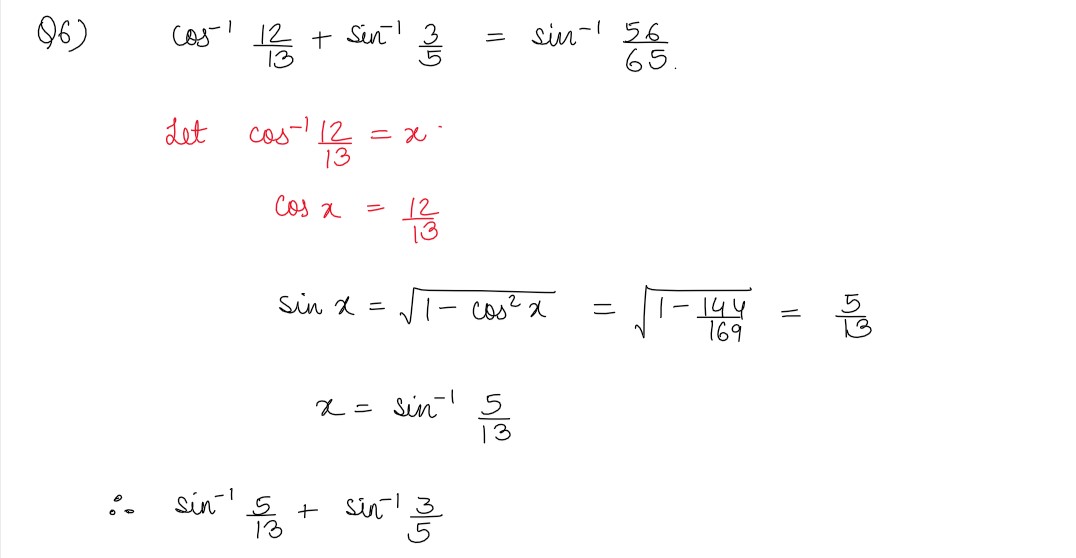 Q6) cos⁻¹ 12/13 + sin⁻¹ 3/5 = sin⁻¹ 56/65.
Let cos⁻¹ 12/13 = x.
cos x = 12/13
sin x = √(1 - cos² x) = √(1 - 144/169) = 5/13
x = sin⁻¹ 5/13
∴ sin⁻¹ 5/13 + sin⁻¹ 3/5